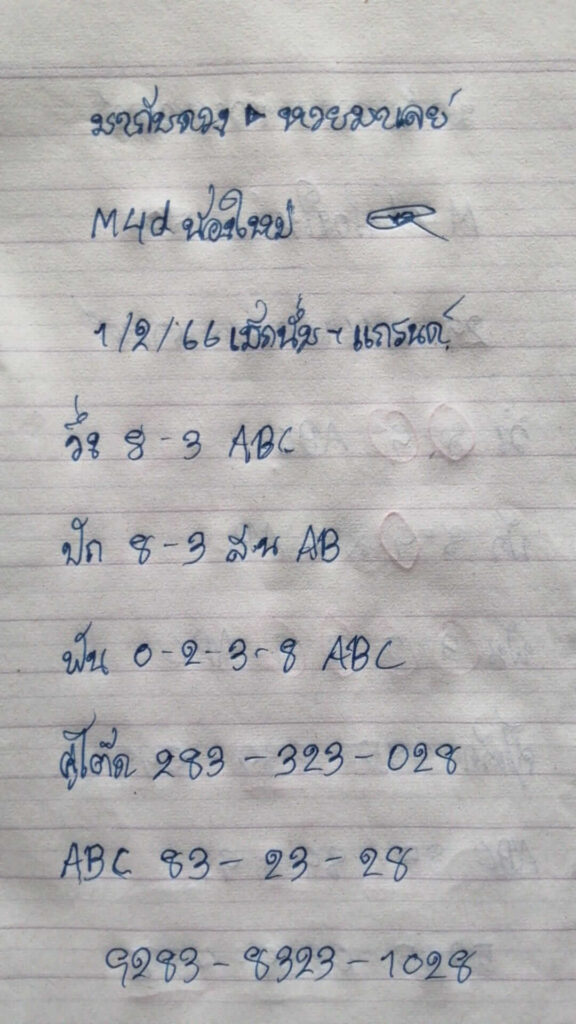 มากับดวง ► หวยมาเลย์
M4d น้องใหม่
1/2/66 แม็กนั่ม - แกรนด์
วิ่ง 8 - 3 ABC
ปัก 8 - 3 สน AB
ฟัน 0 - 2 - 3 - 8 ABC
สู้โต๊ด 283 - 323 - 028
ABC 83 - 23 - 28
9283 - 8323 - 1028